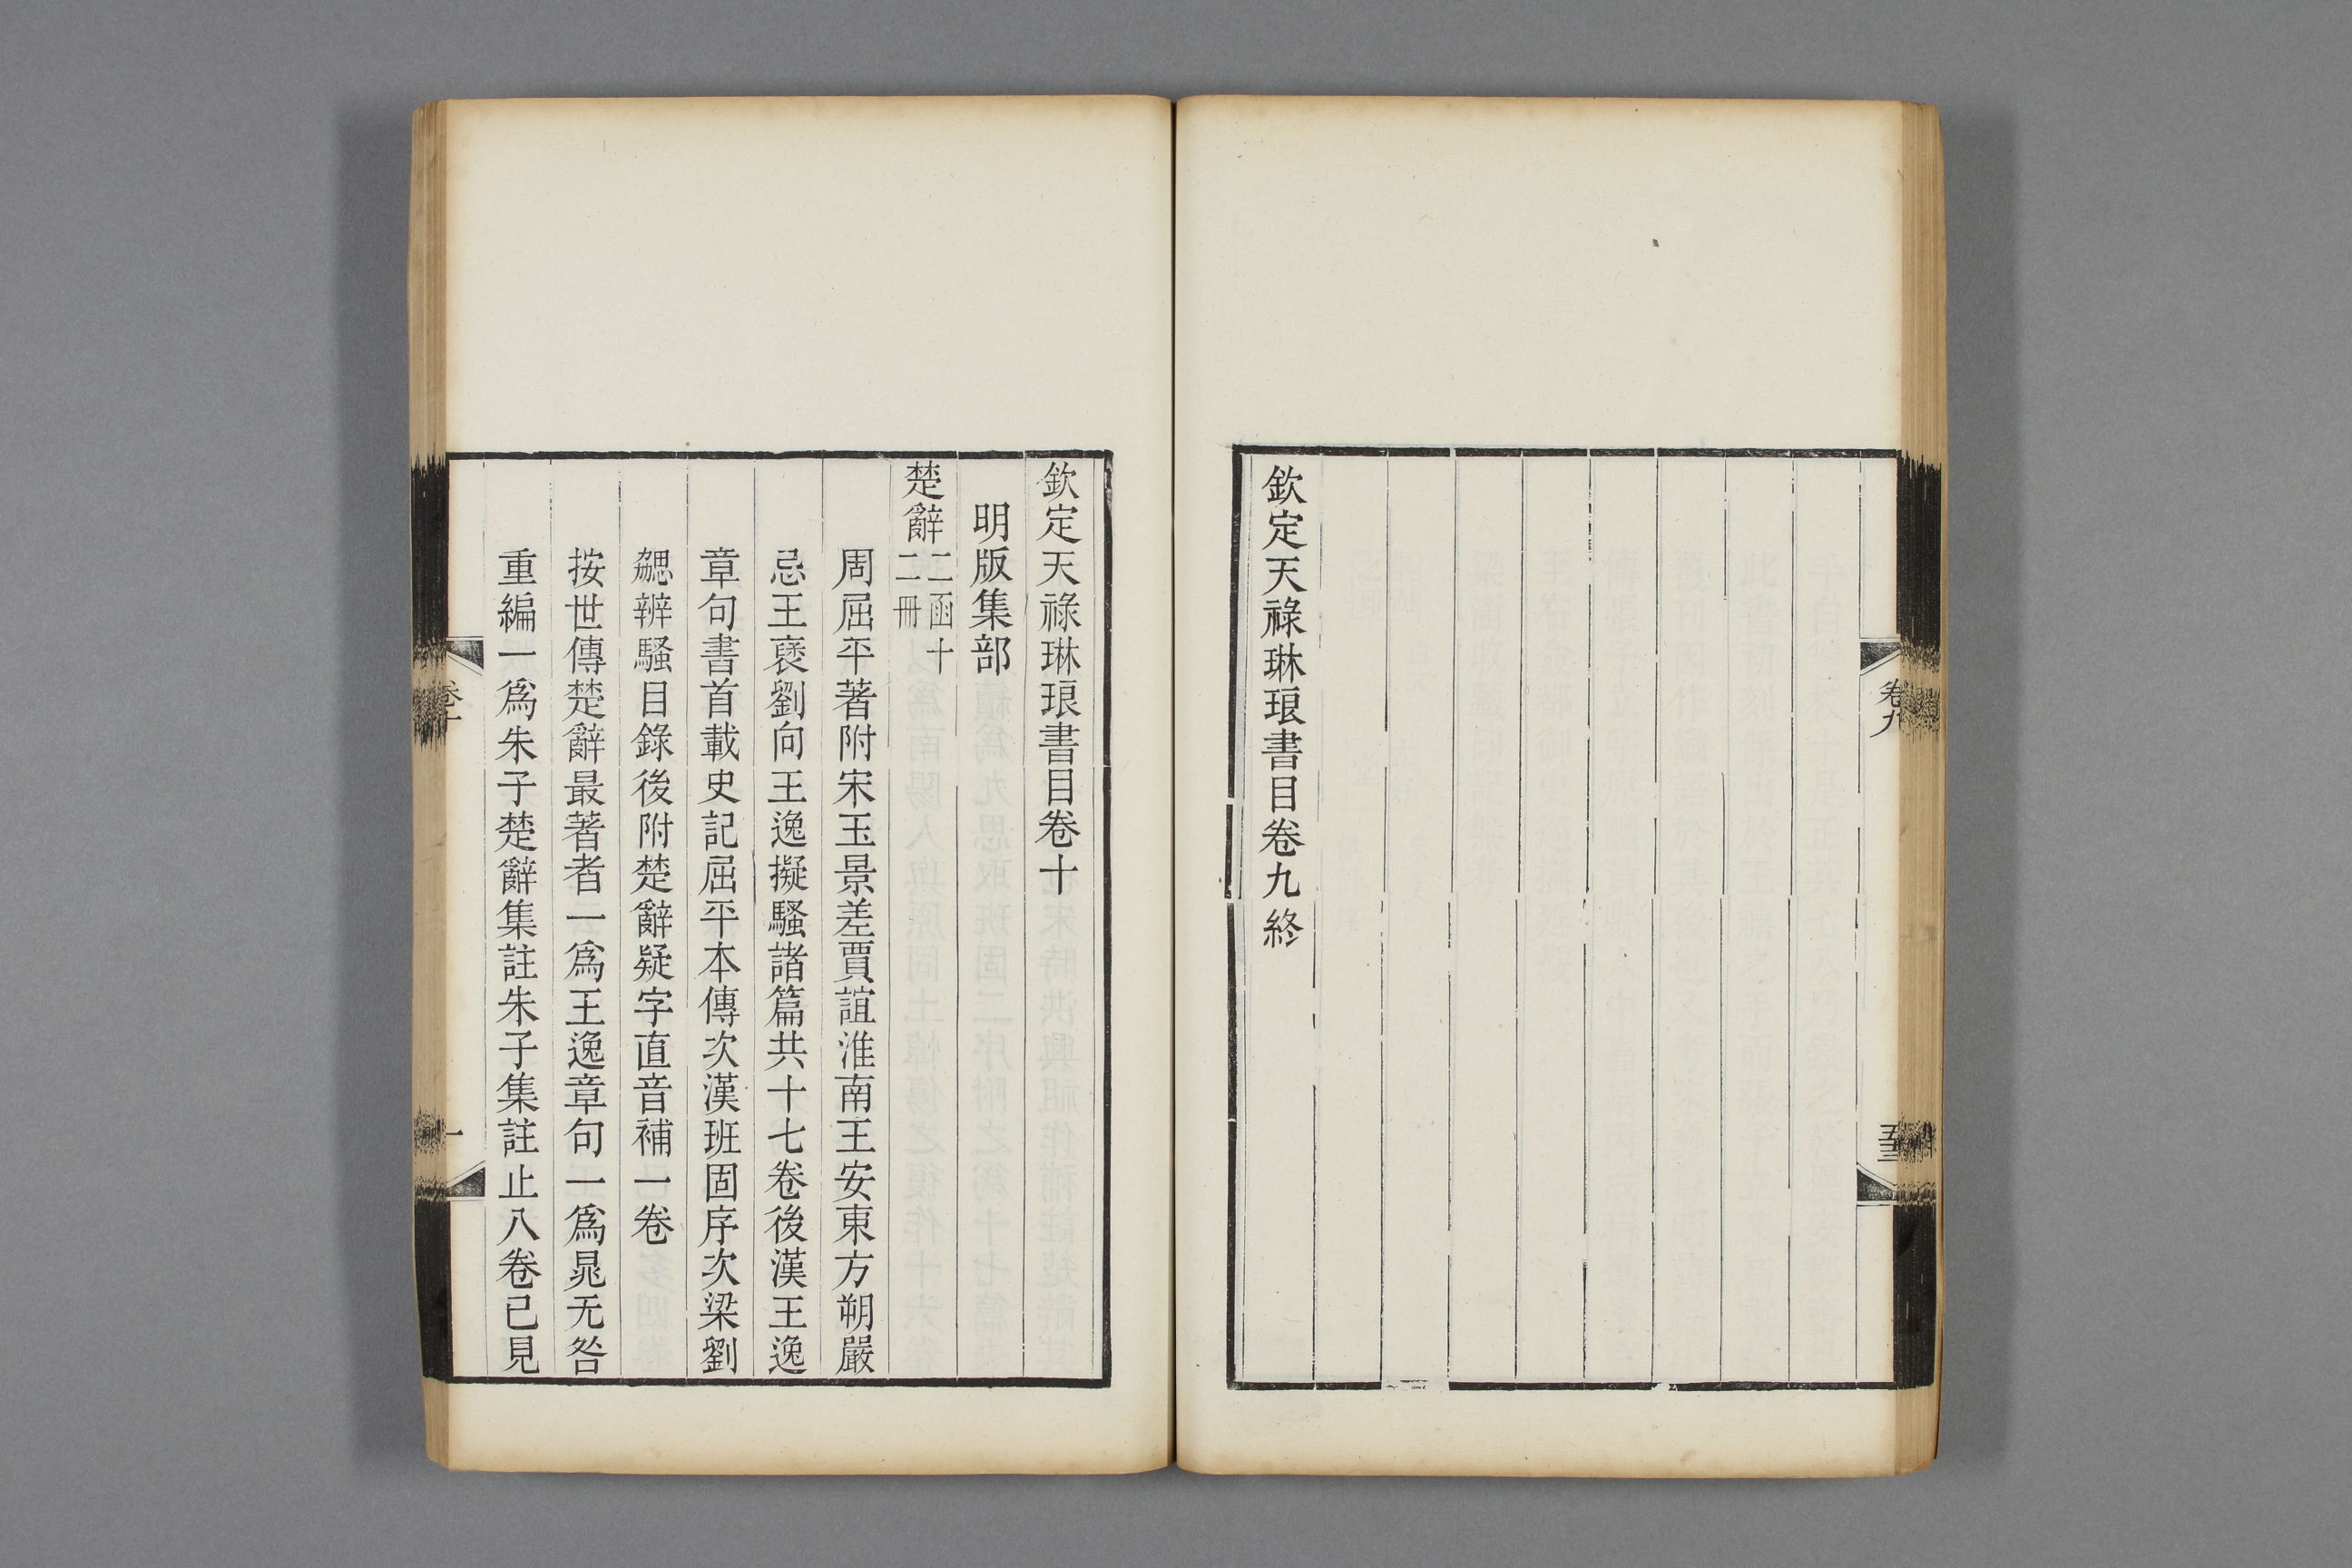 卷九
五三
欽定天祿琳琅書目卷九終
欽定天祿琳琅書目卷十
明版集部
楚辭二函十二冊
周屈平著附宋玉景差賈誼淮南王安東方朔嚴
忌王襃劉向王逸擬騷諸篇共十七卷後漢王逸
章句書首載史記屈平本傳次漢班固序次梁劉
勰辨騷目錄後附楚辭疑字直音補一卷
按世傳楚辭最著者一爲王逸章句一爲晁无咎
重編一爲朱子楚辭集註朱子集註止八卷已見
卷十
一